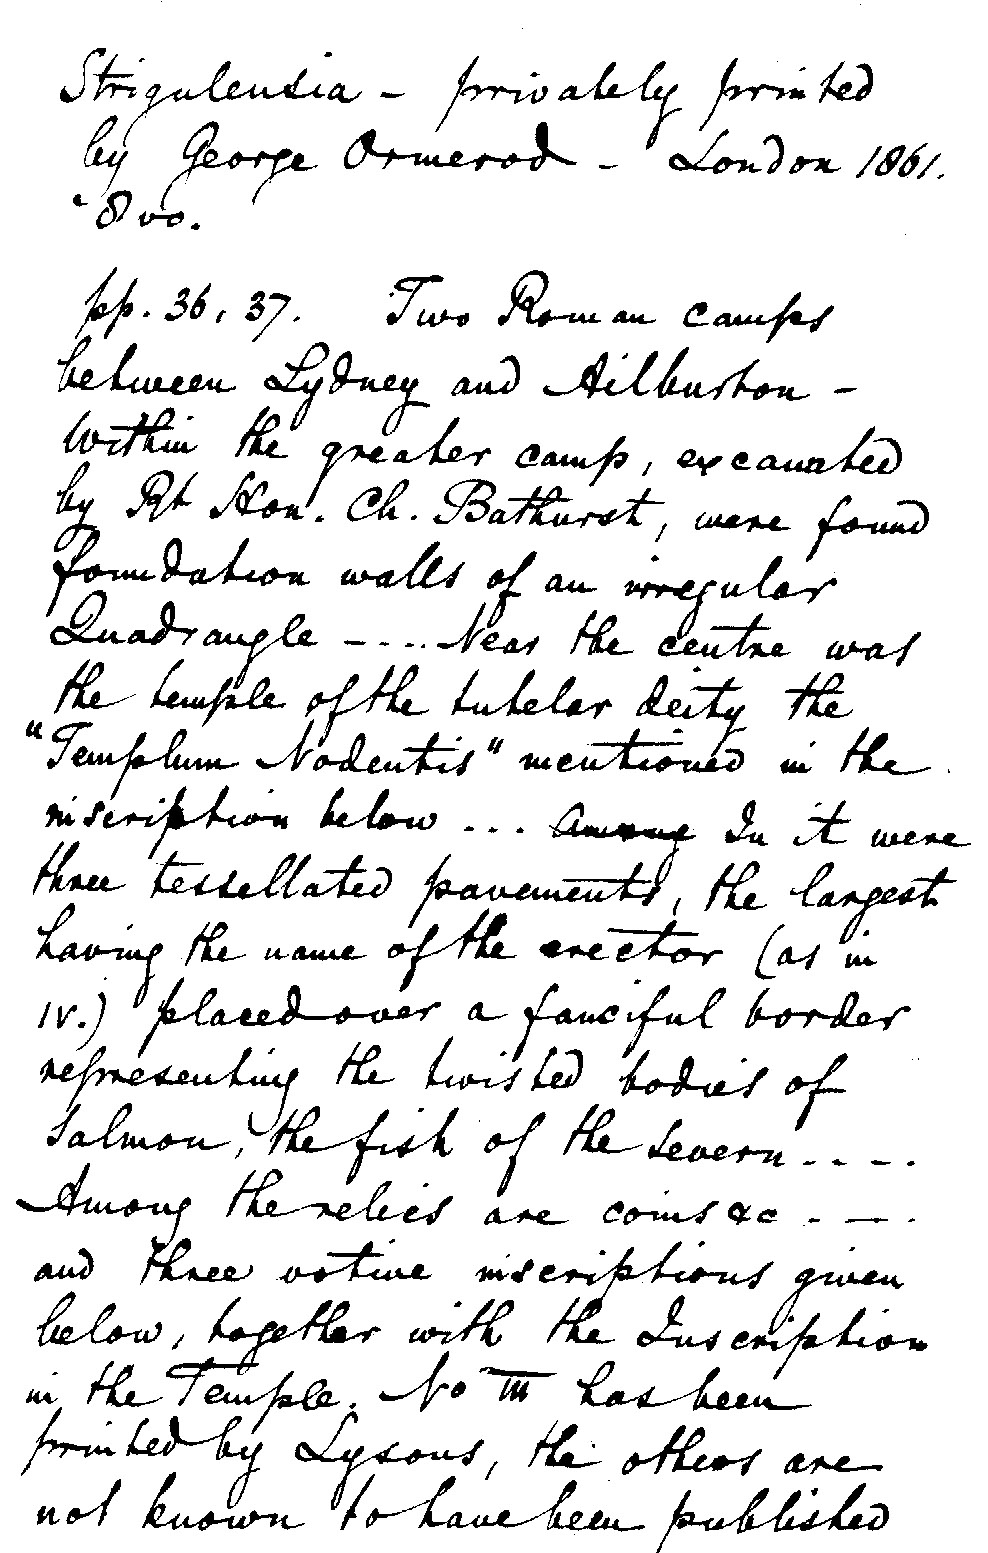 Strigulensia - privately printed
by George Ormerod - London 1861.
8vo.
pp. 36, 37. Two Roman camps
between Lydney and Ailburton -
Within the greater camp, excavated
by Rt Hon. Ch. Bathurst, were found
foundation walls of an irregular
Quadrangle - .... Near the centre was
the temple of the tutelar deity the
"Templum Nodentis" mentioned in the
inscription below ... Among In it were
three tessellated pavements, the largest
having the name of the erector (as in
IV.) placed over a fanciful border
representing the twisted bodies of
Salmon, the fish of the Severn ....
Among the relics are coins &c . — .
and three votive inscriptions given
below, together with the Inscription
in the Temple. No III has been
printed by Lysons, the others are
not known to have been published